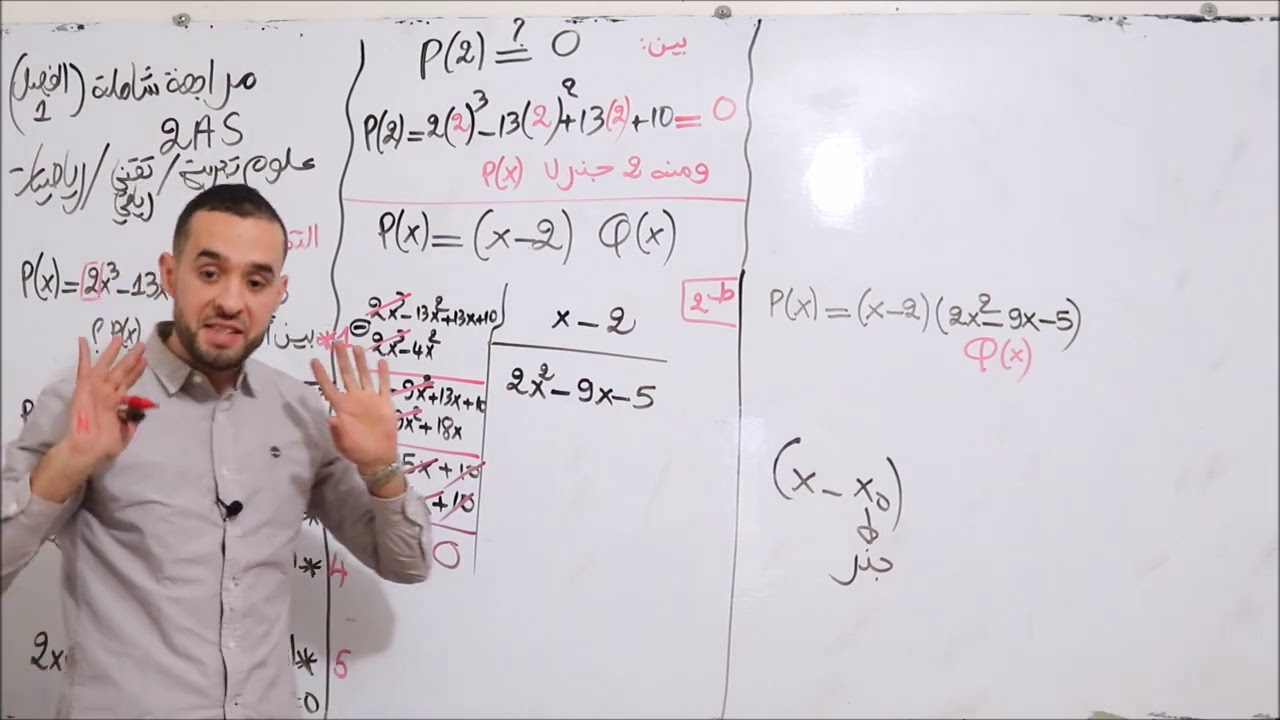 مراجعة شاملة (الفصل 1)
2AS
علوم تجريبية / تقني رياضي / رياضيات
P(x)=2x³-13x
P(x) ?
*1
4
5
2x
=0
بين: P(2) ≟ 0
P(2)=2(2)³-13(2)²+13(2)+10=0
ومنه 2 جذر لـ P(x)
P(x)=(x-2) Q(x)
2x³-13x²+13x+10
x-2
⊖
2x³-4x²
2x²-9x-5
-9x²+13x+10
9x²+18x
5x+10
+10
0
ط2
P(x)=(x-2)(2x²-9x-5)
Q(x)
(x-x₀)
جذر